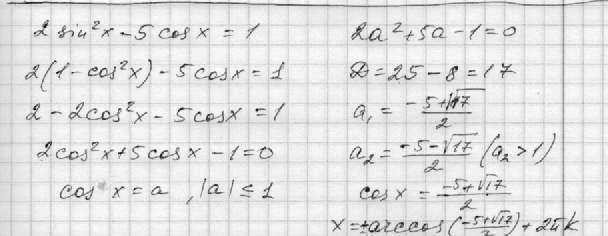 2 sin²x - 5 cos x = 1
2(1 - cos²x) - 5 cos x = 1
2 - 2cos²x - 5 cos x = 1
2cos²x + 5 cos x - 1 = 0
cos x = a , |a| ≤ 1
2a² + 5a - 1 = 0
D = 25 - 8 = 17
a₁ = (-5 + √17)/2
a₂ = (-5 - √17)/2 (a₂ > 1)
cos x = (-5 + √17)/2
x = ± arccos ((-5 + √17)/2) + 2πk